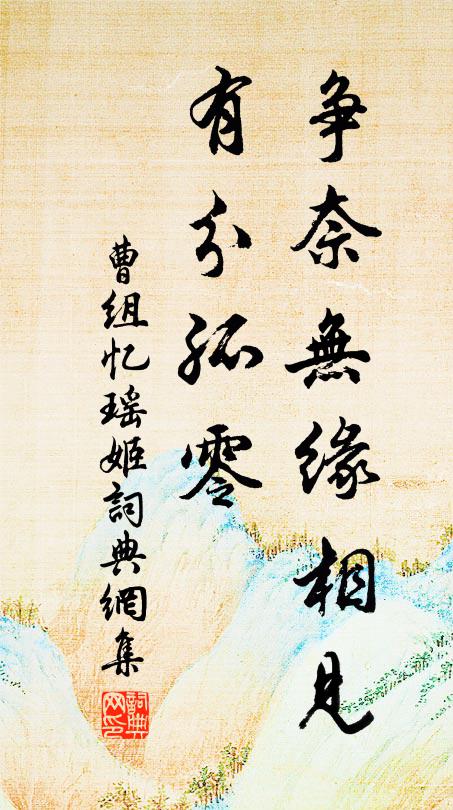 争奈無缘相見
有分孤零
曹组忆瑶姬詞典網集
詞典网印